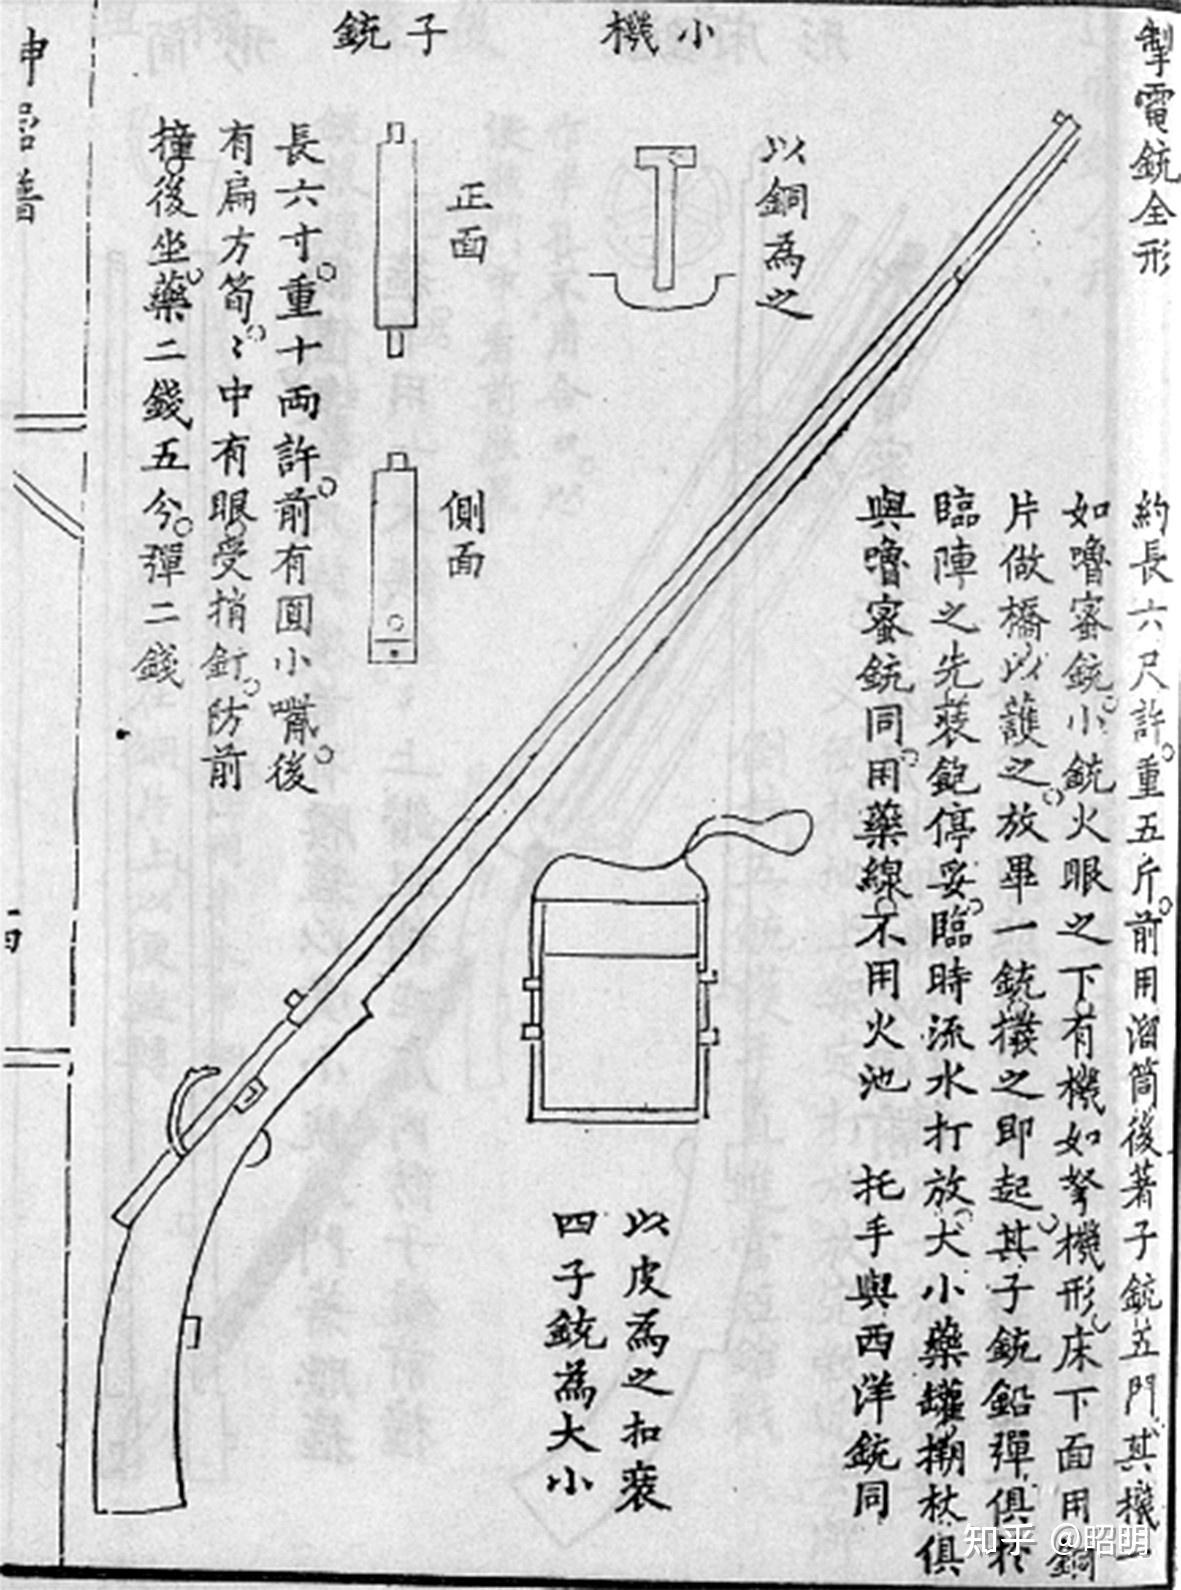 掣電銃全形
約長六尺許重五斤前用溜筒後著子銃五門其機一
如嚕蜜銃小銃火眼之下有機如弩機形床下面用銅
片做橋以護之放畢一銃撥之即起其子銃鉛彈俱於
臨陣之先裝飽停妥臨時流水打放大小藥罐搠杖俱
與嚕蜜銃同用藥線不用火池 托手與西洋銃同
小機
以銅為之
以皮為之扣裝
四子銃為大小
子銃
正面
側面
長六寸重十両許前有圓小嘴後
有扁方筍〻中有眼受捎釘防前
撞後坐藥二錢五分彈二錢
神器譜
知乎 @昭明